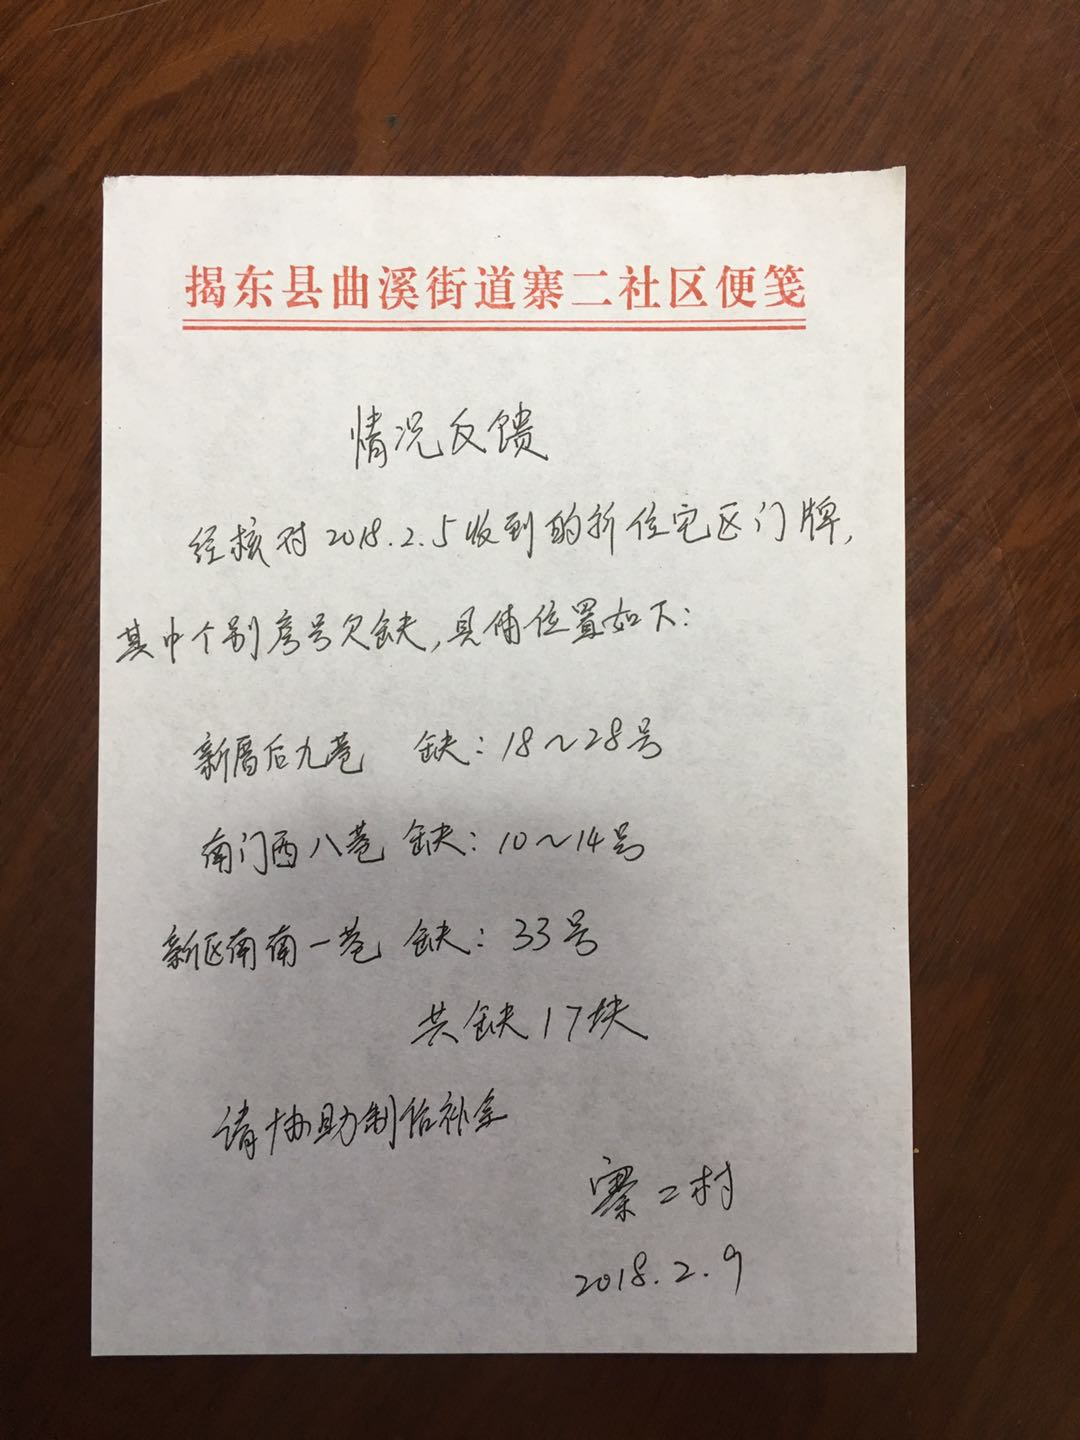 揭东县曲溪街道寨二社区便笺
情况反馈
经核对2018.2.5收到的新住宅区门牌,
其中个别序号欠缺,具体位置如下:
新厝后九巷 缺:18~28号
南门西八巷 缺:10~14号
新区南南一巷 缺:33号
共缺17块
请协助制作补全
寨二村
2018.2.9